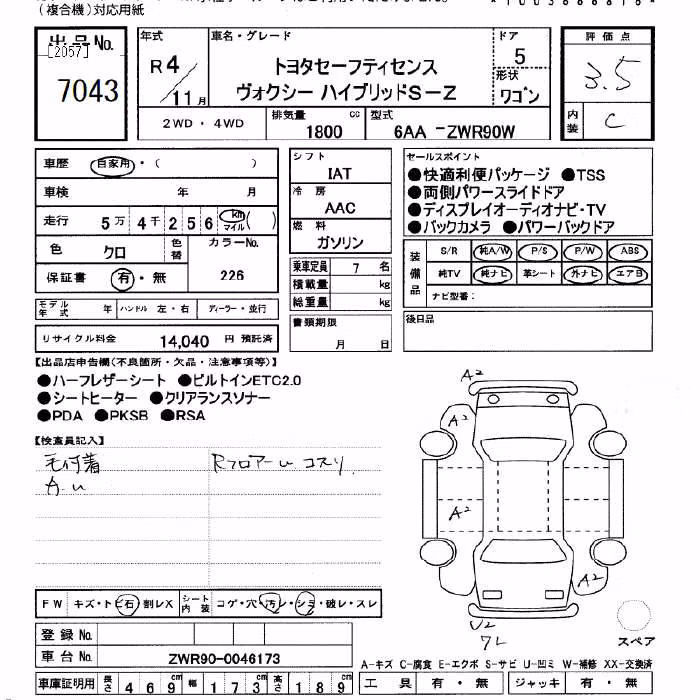 (複合機)対応用紙
出品No.
[2057]
7043
年式
R4/11月
車名・グレード
トヨタセーフティセンス
ヴォクシー ハイブリッドS-Z
ドア
5
形状
ワゴン
評価点
3.5
内装
C
2WD・4WD
排気量
1800 cc
型式
6AA -ZWR90W
車歴 自家用・( )
車検 年 月
走行 5万4千256 km マイル( )
色 クロ
色替
カラーNo.
226
保証書 有・無
モデル年式 年 ハンドル 左・右 ディーラー・並行
リサイクル料金 14,040 円 預託済
シフト
IAT
冷房
AAC
燃料
ガソリン
乗車定員 7 名
積載量 kg
総重量 kg
書類期限
月 日
セールスポイント
●快適利便パッケージ ●TSS
●両側パワースライドドア
●ディスプレイオーディオナビ・TV
●バックカメラ ●パワーバックドア
装備品
S/R 純A/W P/S P/W ABS
純TV 純ナビ 革シート 外ナビ エアB
ナビ型番:
後日品
【出品店申告欄(不良箇所・欠品・注意事項等)】
●ハーフレザーシート ●ビルトインETC2.0
●シートヒーター ●クリアランスソナー
●PDA ●PKSB ●RSA
【検査員記入】
毛付着
Rフロアーu コスリ
A-u
A2
A2
A2
A2
U2
7L
スペア
FW キズ・トビ石 割レX
シート内装 コゲ・穴・汚レ・シミ・破レ・スレ
登録No.
車台No. ZWR90-0046173
A-キズ C-腐食 E-エクボ S-サビ U-凹ミ W-補修 XX-交換済
車庫証明用 長さ 469cm 幅 173cm 高さ 189cm
工具 有・無 ジャッキ 有・無